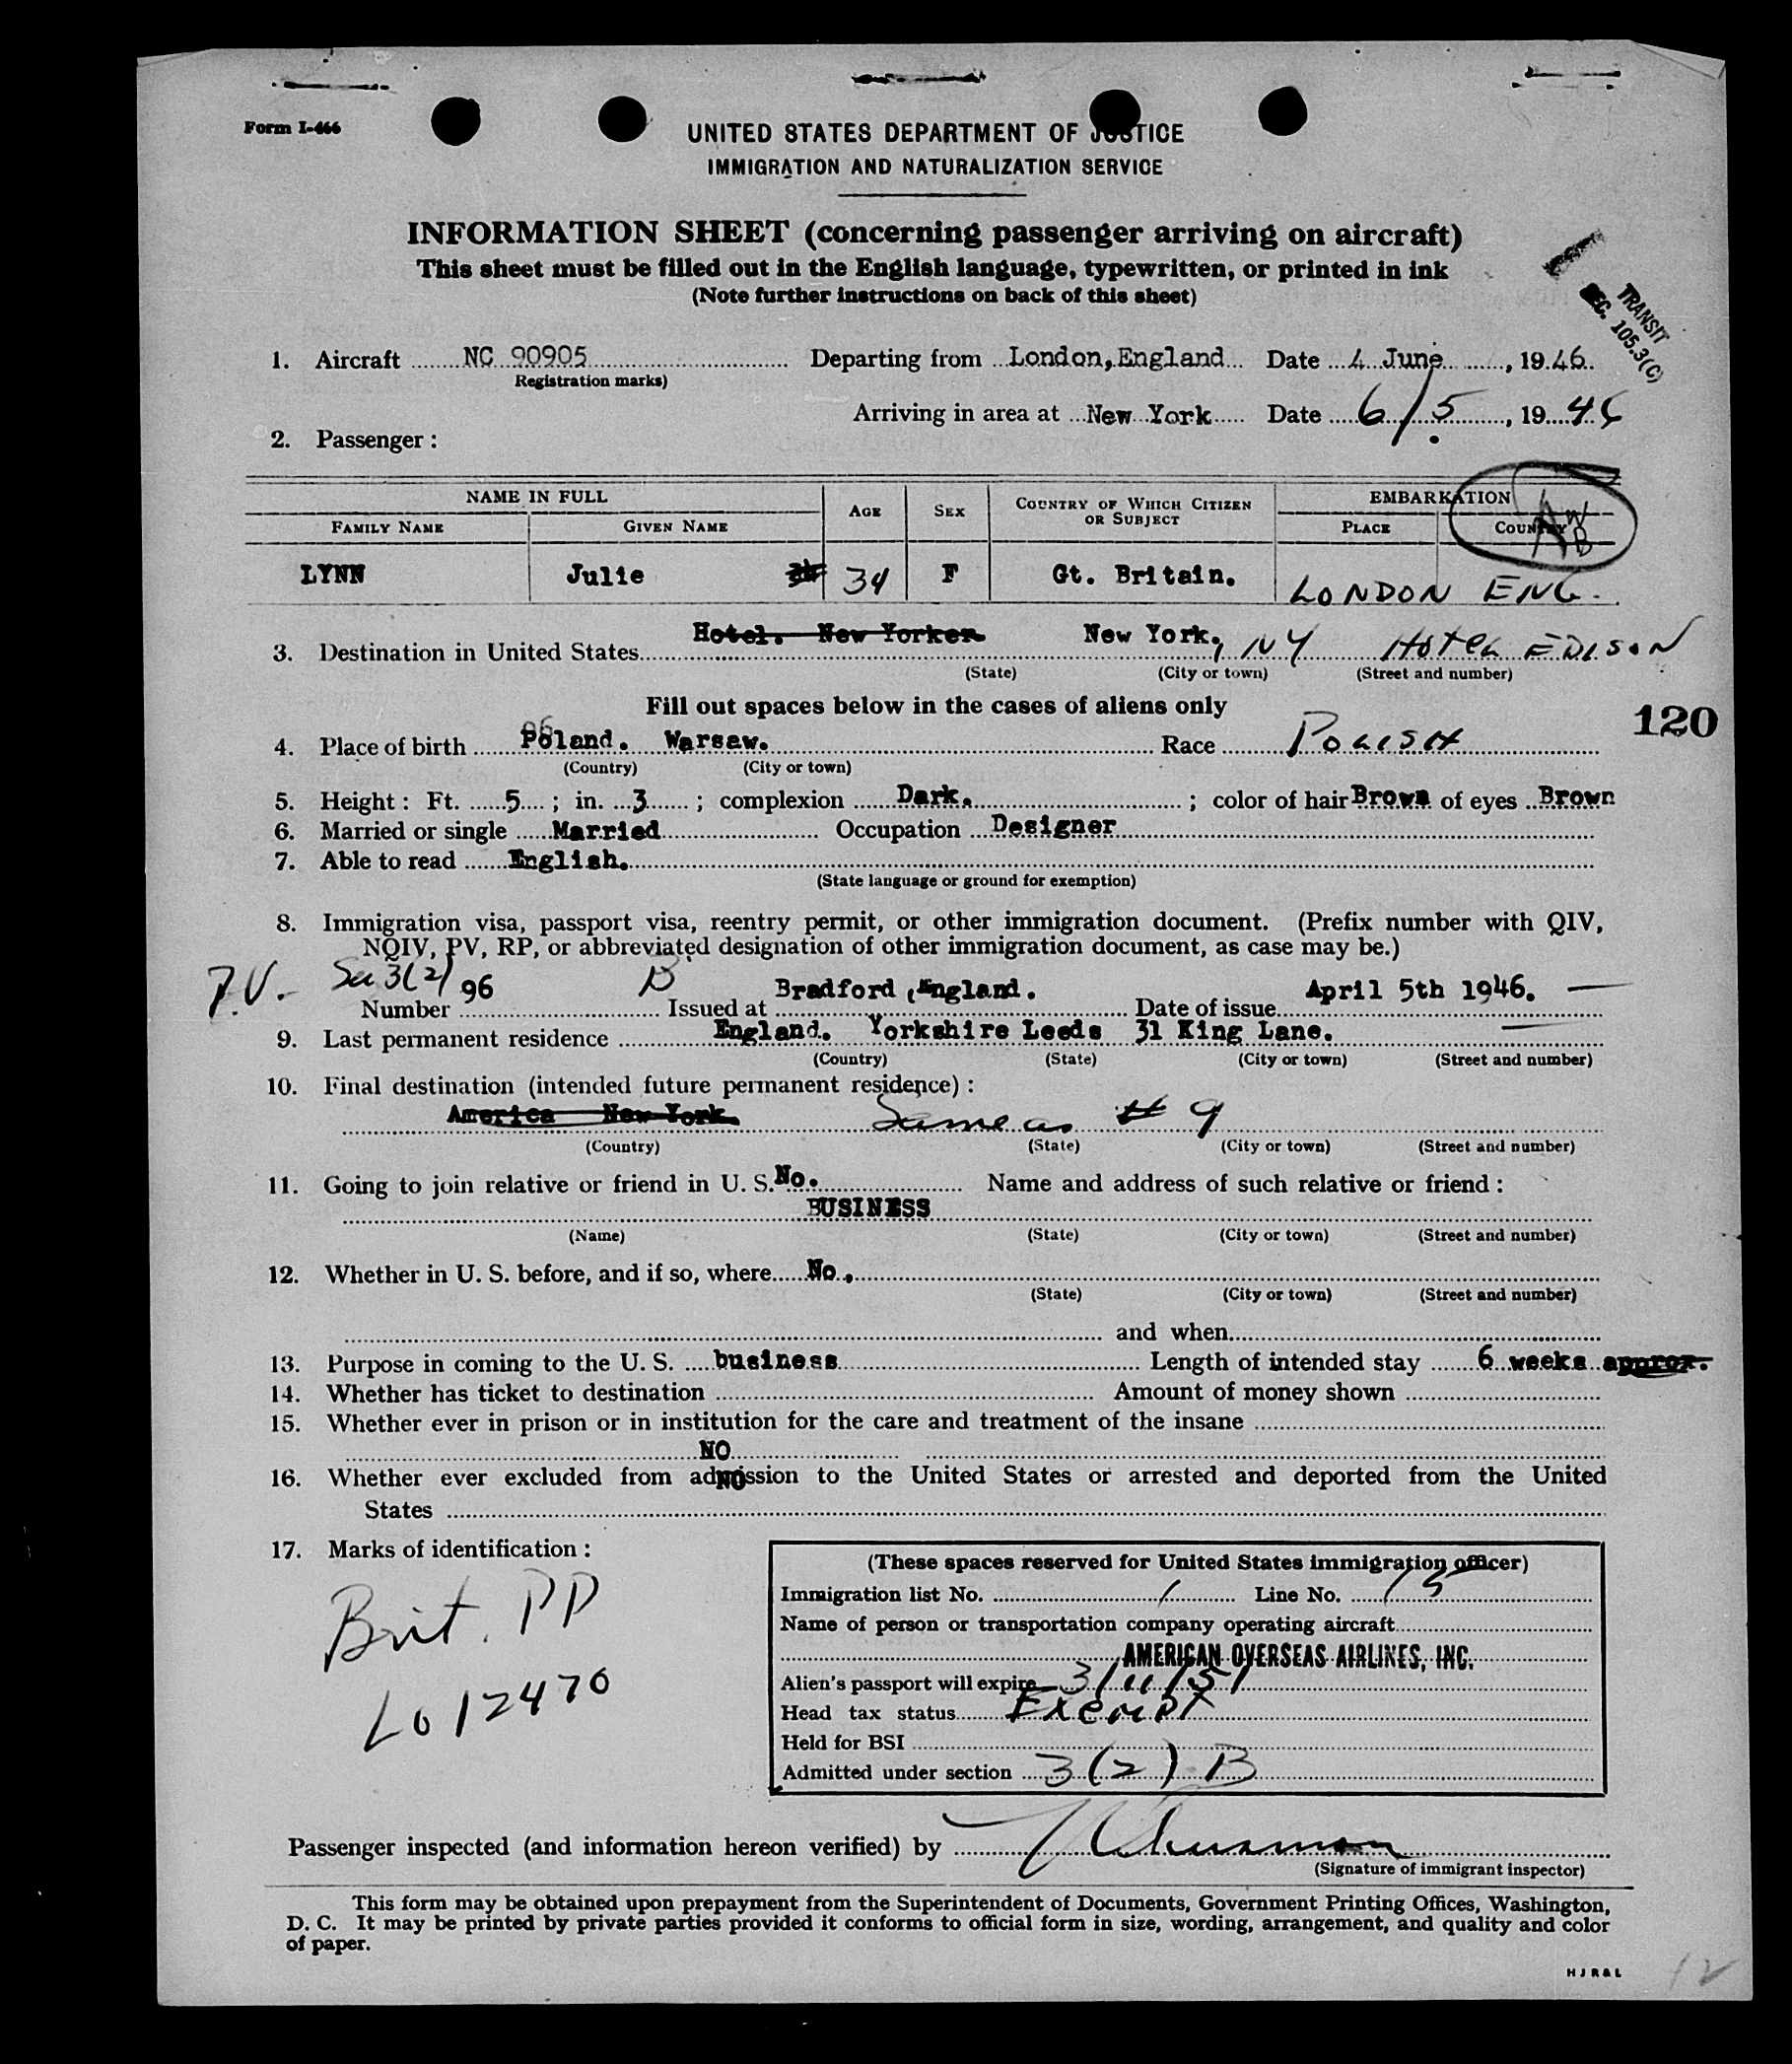 Form I-466
UNITED STATES DEPARTMENT OF JUSTICE
IMMIGRATION AND NATURALIZATION SERVICE
INFORMATION SHEET (concerning passenger arriving on aircraft)
This sheet must be filled out in the English language, typewritten, or printed in ink
(Note further instructions on back of this sheet)
TRANSIT
SEC. 105.3(C)
1. Aircraft NC 90905 Departing from London, England Date 4 June, 1946.
(Registration marks)
Arriving in area at New York Date 6/5, 1946
2. Passenger:
NAME IN FULL AGE SEX COUNTRY OF WHICH CITIZEN OR SUBJECT EMBARKATION
FAMILY NAME GIVEN NAME PLACE COUNTRY
LYNN Julie 34 F Gt. Britain. LONDON ENG.
3. Destination in United States Hotel. New Yorker New York, NY Hotel EDISON
(State) (City or town) (Street and number)
Fill out spaces below in the cases of aliens only
120
4. Place of birth Poland. Warsaw. Race POLISH
(Country) (City or town)
5. Height: Ft. 5; in. 3; complexion Dark. ; color of hair Brown of eyes Brown
6. Married or single Married Occupation Designer
7. Able to read English.
(State language or ground for exemption)
8. Immigration visa, passport visa, reentry permit, or other immigration document. (Prefix number with QIV,
NQIV, PV, RP, or abbreviated designation of other immigration document, as case may be.)
P.V. Sec 3(2) 96 B Bradford, England. April 5th 1946.
Number Issued at Date of issue
9. Last permanent residence England. Yorkshire Leeds 31 King Lane.
(Country) (State) (City or town) (Street and number)
10. Final destination (intended future permanent residence):
America New York. Same as # 9
(Country) (State) (City or town) (Street and number)
11. Going to join relative or friend in U. S. No. Name and address of such relative or friend:
BUSINESS
(Name) (State) (City or town) (Street and number)
12. Whether in U. S. before, and if so, where No.
(State) (City or town) (Street and number)
and when
13. Purpose in coming to the U. S. business Length of intended stay 6 weeks approx.
14. Whether has ticket to destination Amount of money shown
15. Whether ever in prison or in institution for the care and treatment of the insane
NO
16. Whether ever excluded from admission to the United States or arrested and deported from the United
NO
States
17. Marks of identification:
Brit. PP
LO 12470
(These spaces reserved for United States immigration officer)
Immigration list No. 1 Line No. 15
Name of person or transportation company operating aircraft
AMERICAN OVERSEAS AIRLINES, INC.
Alien's passport will expire 3/11/51
Head tax status Exempt
Held for BSI
Admitted under section 3(2) B
Passenger inspected (and information hereon verified) by
(Signature of immigrant inspector)
This form may be obtained upon prepayment from the Superintendent of Documents, Government Printing Offices, Washington,
D. C. It may be printed by private parties provided it conforms to official form in size, wording, arrangement, and quality and color
of paper.
H J R & L
12